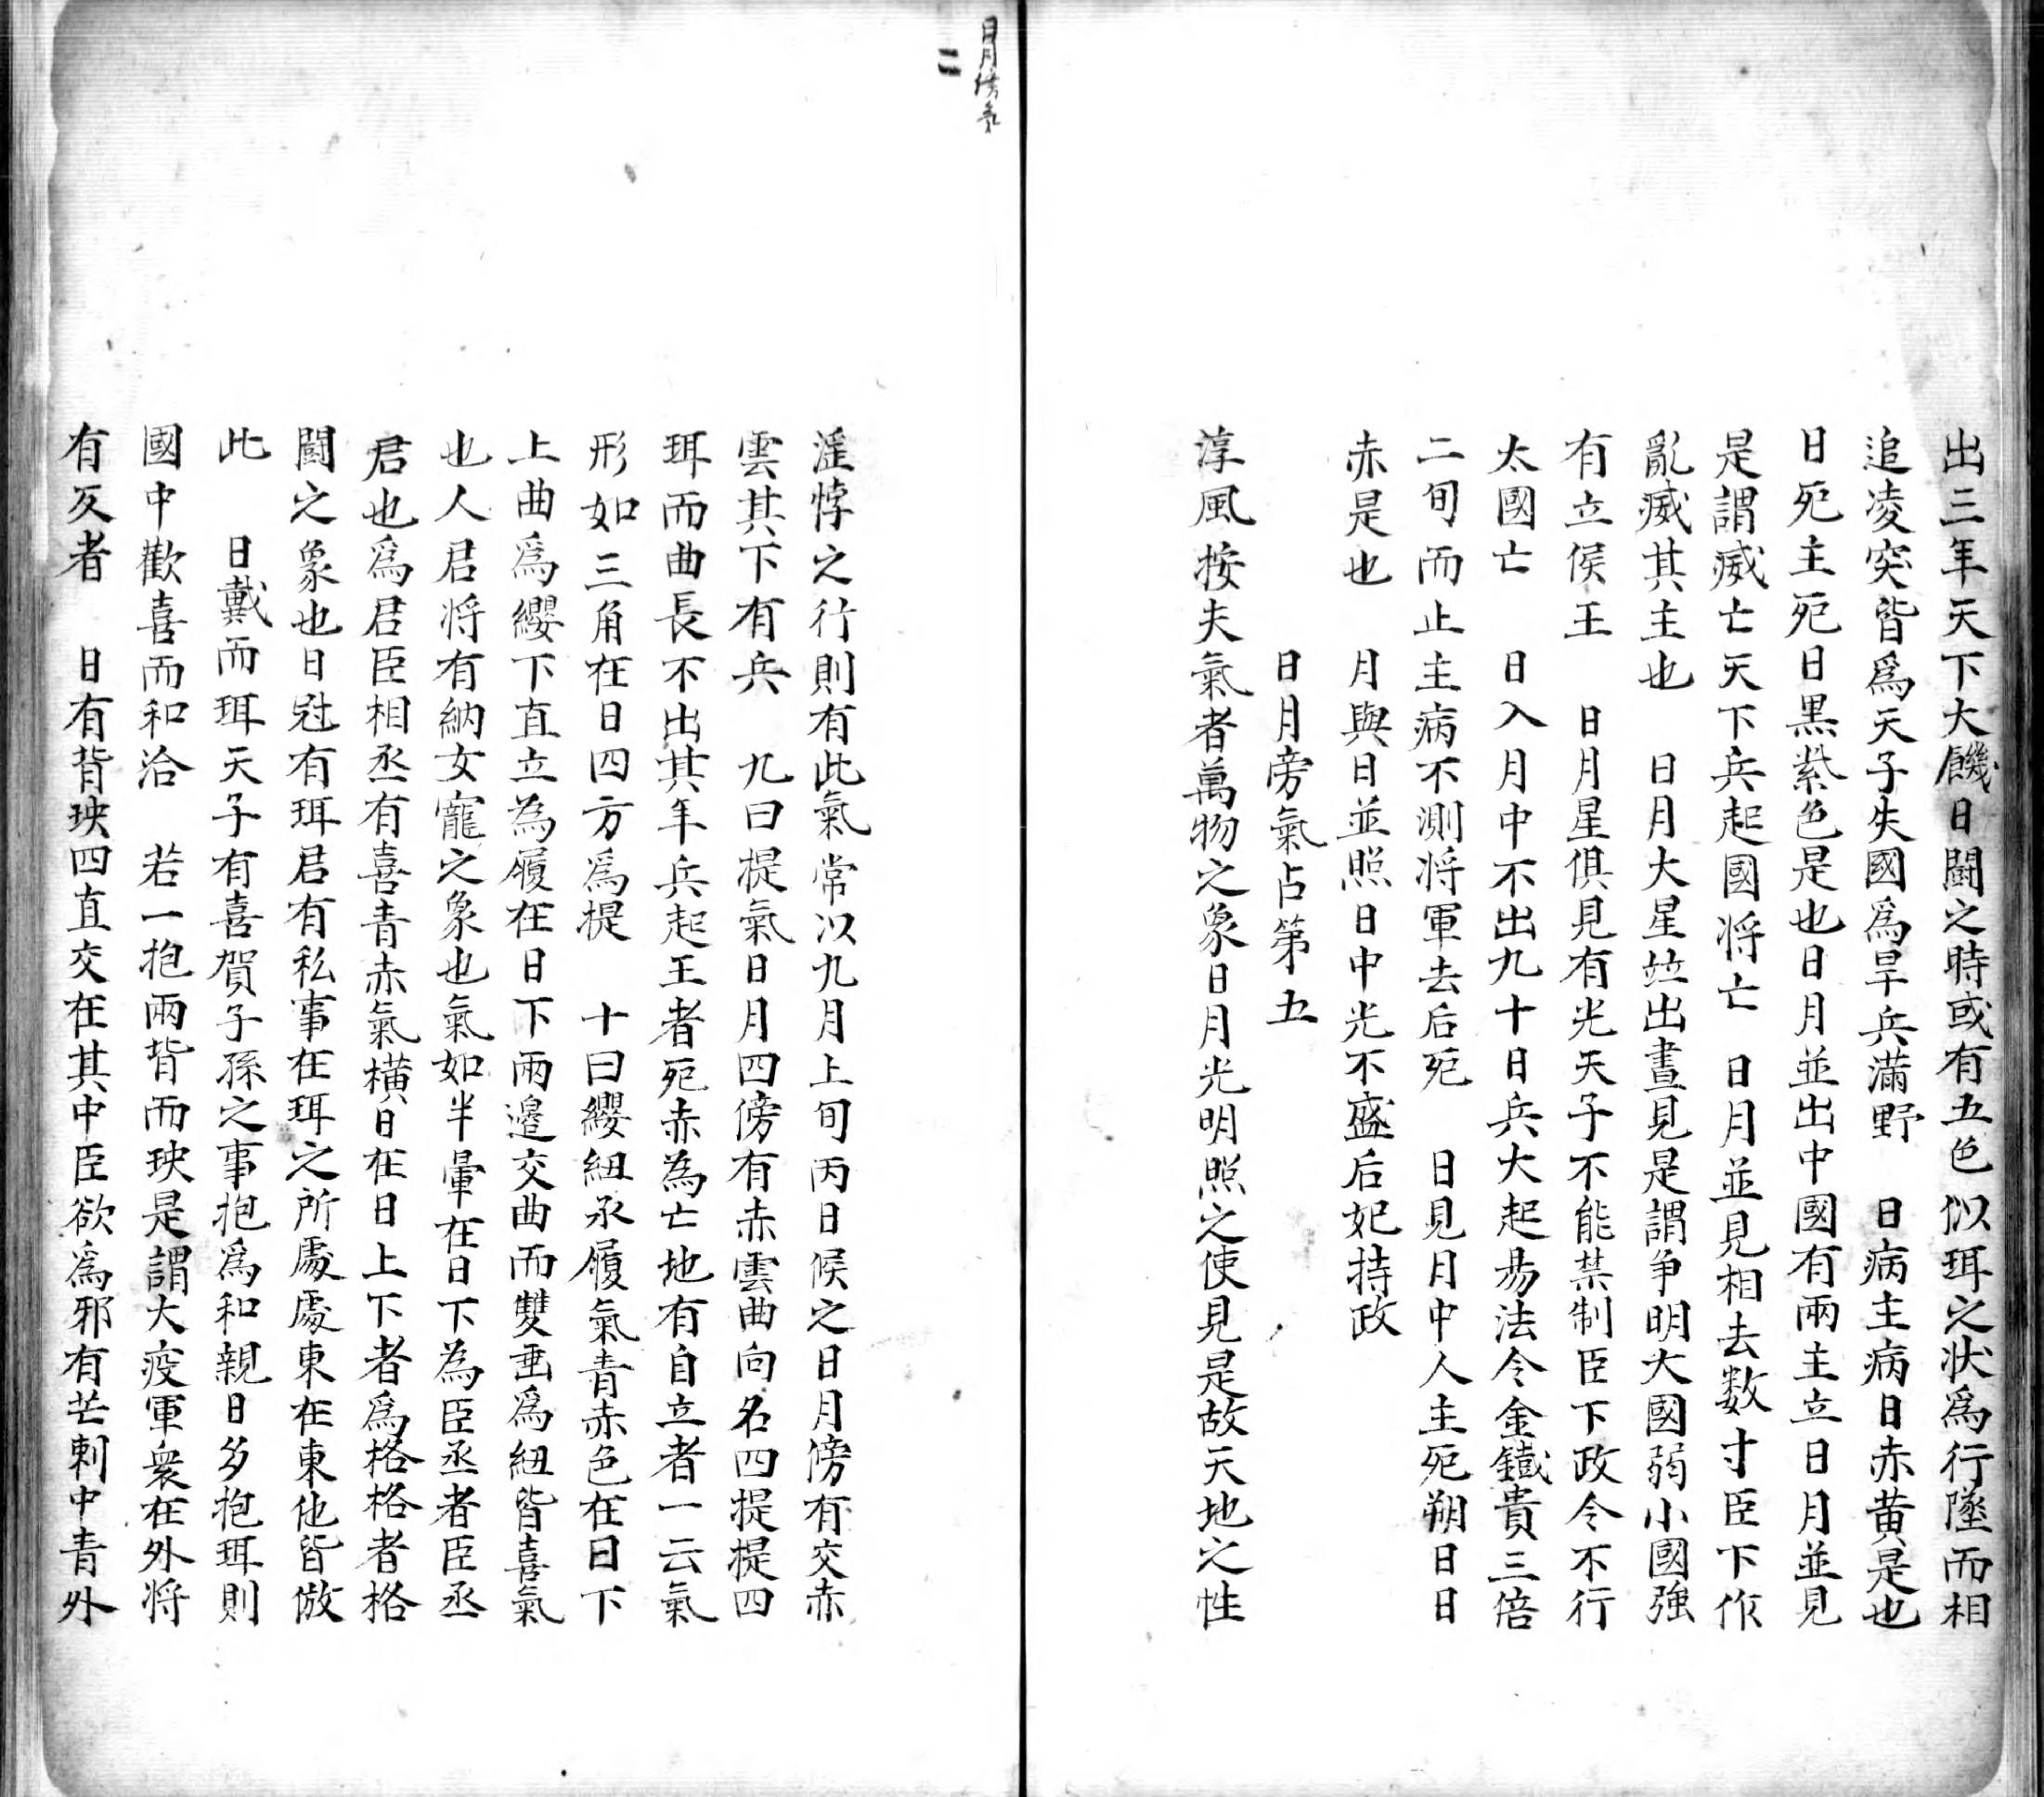 出三年天下大饑日鬬之時或有五色似珥之状爲行墜而相
追凌突皆爲天子失國爲旱兵滿野　日病主病日赤黄是也
日死主死日黒紫色是也日月並出中國有兩主立日月並見
是謂烕亡天下兵起國将亡　日月並見相去数寸臣下作
亂烕其主也　日月大星竝出晝見是謂争明大國弱小國強
有立侯王　日月星俱見有光天子不能禁制臣下政令不行
大國亡　日入月中不出九十日兵大起易法令金鐡貴三倍
二旬而止主病不測将軍去后死　日見月中人主死朔日日
赤是也　月與日並照日中光不盛后妃持政
日月旁氣占第五
淳風按夫氣者萬物之象日月光明照之使見是故天地之性
日月傍氣
二
滛悖之行則有此氣常以九月上旬丙日候之日月傍有交赤
雲其下有兵　九曰提氣日月四傍有赤雲曲向名四提提四
珥而曲長不出其年兵起王者死赤為亡地有自立者一云氣
形如三角在日四方爲提　十曰纓紐承履氣青赤色在日下
上曲爲纓下直立為履在日下兩邉交曲而雙垂爲紐皆喜氣
也人君将有納女寵之象也氣如半暈在日下為臣丞者臣丞
君也爲君臣相丞有喜青赤氣橫日在日上下者爲格格者格
鬬之象也日冠有珥君有私事在珥之所處處東在東他皆倣
此　日戴而珥天子有喜賀子孫之事抱爲和親日多抱珥則
國中歡喜而和洽　若一抱兩背而玦是謂大疫軍衆在外将
有反者　日有背玦四直交在其中臣欲爲邪有芒刺中青外